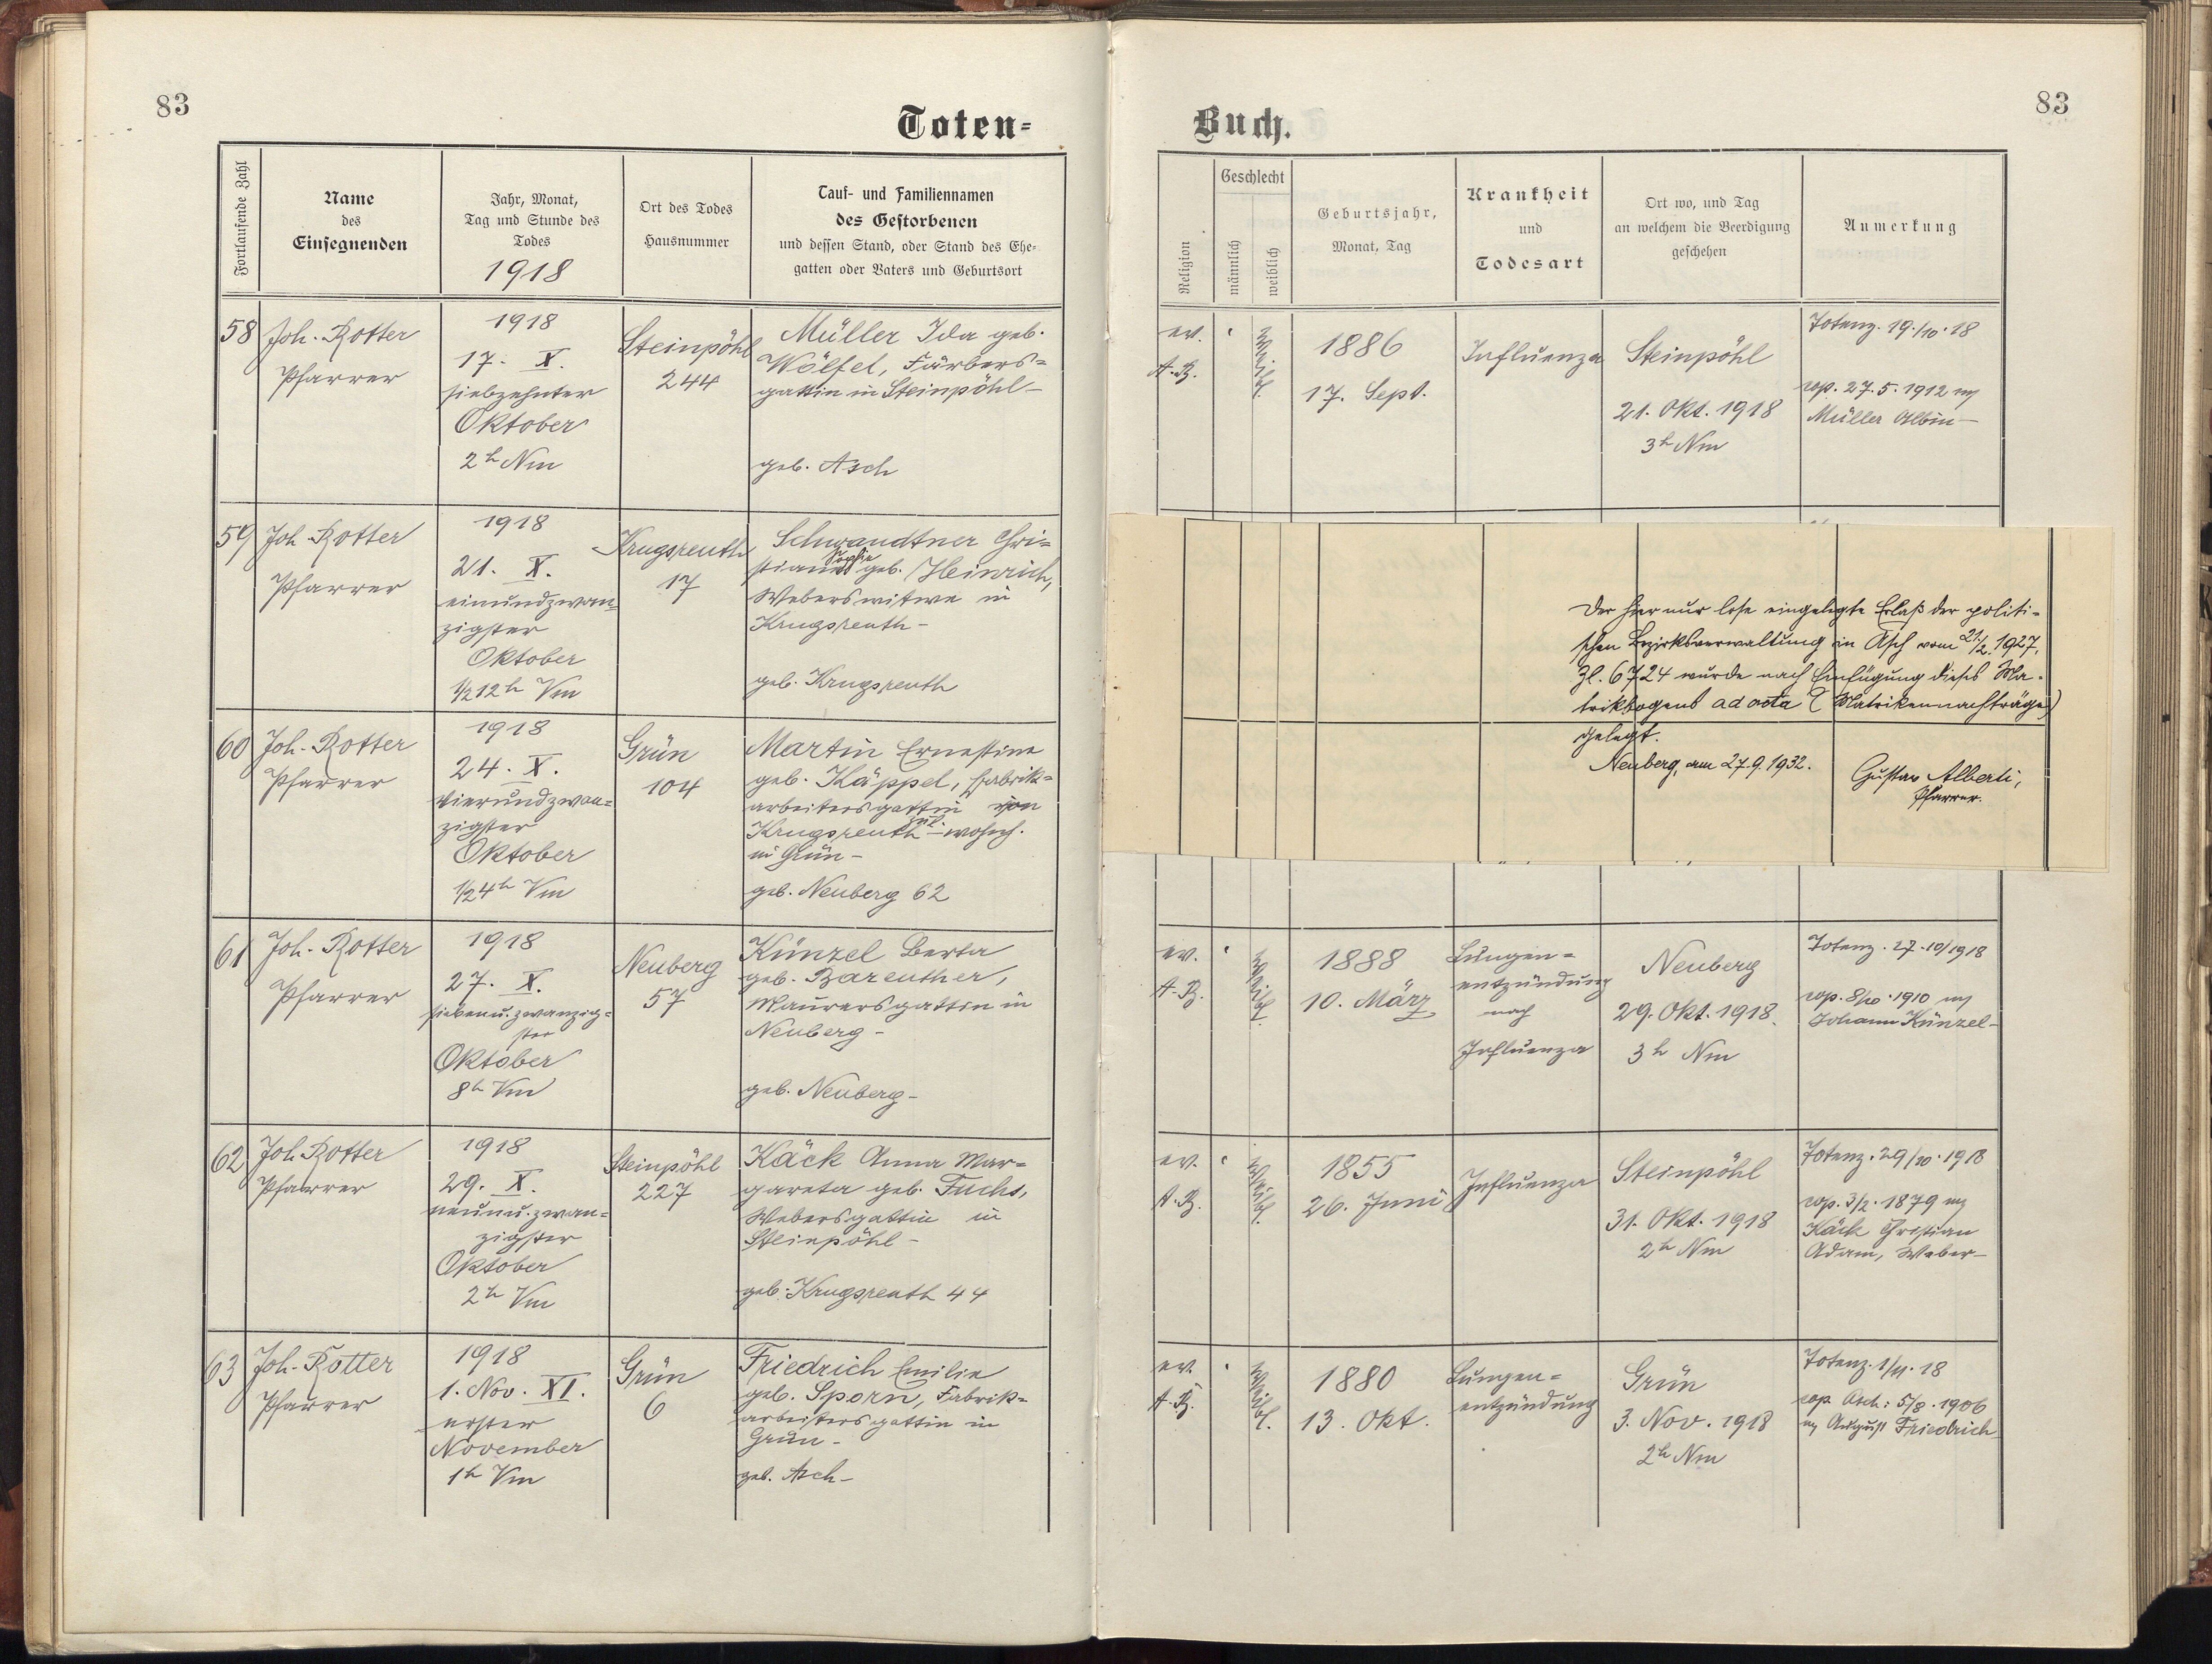 83
Toten-
Fortlaufende Zahl
Name
des
Einsegnenden
Jahr, Monat,
Tag und Stunde des
Todes
1918
Ort des Todes
Hausnummer
Tauf- und Familiennamen
des Gestorbenen
und dessen Stand, oder Stand des Ehe-
gatten oder Vaters und Geburtsort
58
Joh. Rotter
Pfarrer
1918
17. X.
siebzehnter
Oktober
2h Nm
Steinpöhl
244
Müller Ida geb.
Wölfel, Färbers-
gattin in Steinpöhl-
geb. Asch
59
Joh. Rotter
Pfarrer
1918
21. X.
einundzwan-
zigster
Oktober
1/2 12h Vm
Krugsreuth
17
Schwandtner Chri-
Sophie
geb. Heinrich,
Weberswitwe in
Krugsreuth-
geb. Krugsreuth
60
Joh. Rotter
Pfarrer
1918
24. X.
vierundzwan-
zigster
Oktober
1/2 4h Vm
Grün
104
Martin Ernestine
geb. Käppel, Fabrik-
arbeitersgattin von
Krugsreuth zul. wohnh.
in Grün-
geb. Neuberg 62
61
Joh. Rotter
Pfarrer
1918
27. X.
siebenu. zwanzig-
ster
Oktober
8h Vm
Neuberg
57
Künzel Berta
geb. Bareuther,
Maurersgattin in
Neuberg-
geb. Neuberg-
62
Joh. Rotter
Pfarrer
1918
29. X.
neunu. zwan-
zigster
Oktober
2h Vm
Steinpöhl
227
Käck Anna Mar-
gareta geb. Fuchs,
Webersgattin in
Steinpöhl-
geb. Krugsreuth 44
63
Joh. Rotter
Pfarrer
1918
1. Nov. XI.
erster
November
1h Vm
Grün
6
Friedrich Emilie
geb. Sporn, Fabrik-
arbeitersgattin in
Grün-
geb. Asch-
83
Buch.
Religion
Geschlecht
männlich
weiblich
Geburtsjahr,
Monat, Tag
Krankheit
und
Todesart
Ort wo, und Tag
an welchem die Beerdigung
geschehen
Anmerkung
ev.
A.B.
weibl.
1886
17. Sept.
Influenza
Steinpöhl
21. Okt. 1918
3h Nm
Totenz. 19./10. 18
cop. 27.5.1912 m
Müller Albin-
Der hier nur lose eingelegte Erlaß der politi-
schen Bezirksverwaltung in Asch vom 21./2. 1927,
Zl. 6724 wurde nach Einfügung dieses Ma-
trikbogens ad acta (Matrikennachträge)
gelegt.
Neuberg, am 27.9.1932.
Gustav Alberti,
Pfarrer.
ev.
A.B.
weibl.
1888
10. März
Lungen-
entzündung
nach
Influenza
Neuberg
29. Okt. 1918.
3h Nm
Totenz. 27.10/1918
cop. 8/10. 1910 m
Johann Künzel-
ev.
A.B.
weibl.
1855
26. Juni
Influenza
Steinpöhl
31. Okt. 1918
2h Nm
Totenz. 29/10. 1918
cop. 3/2. 1879 m
Käck Christian
Adam, Weber-
ev.
A.B.
weibl.
1880
13. Okt.
Lungen-
entzündung
Grün
3. Nov. 1918
2h Nm
Totenz. 1/11. 18
cop. Asch: 5/8. 1906
m August Friedrich-